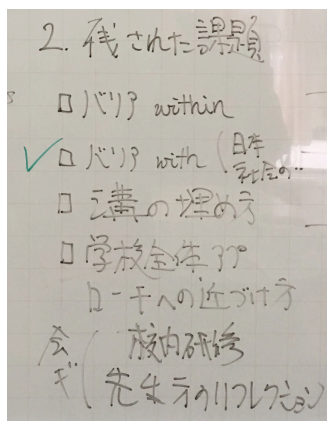 2. 残された課題
□ バリア within
✓ □ バリア with (日本
社会の…
□ 溝の埋め方
□ 学校全体アプ
ローチへの近づけ方
会ギ ( 校内研修
先生方のリフレクション